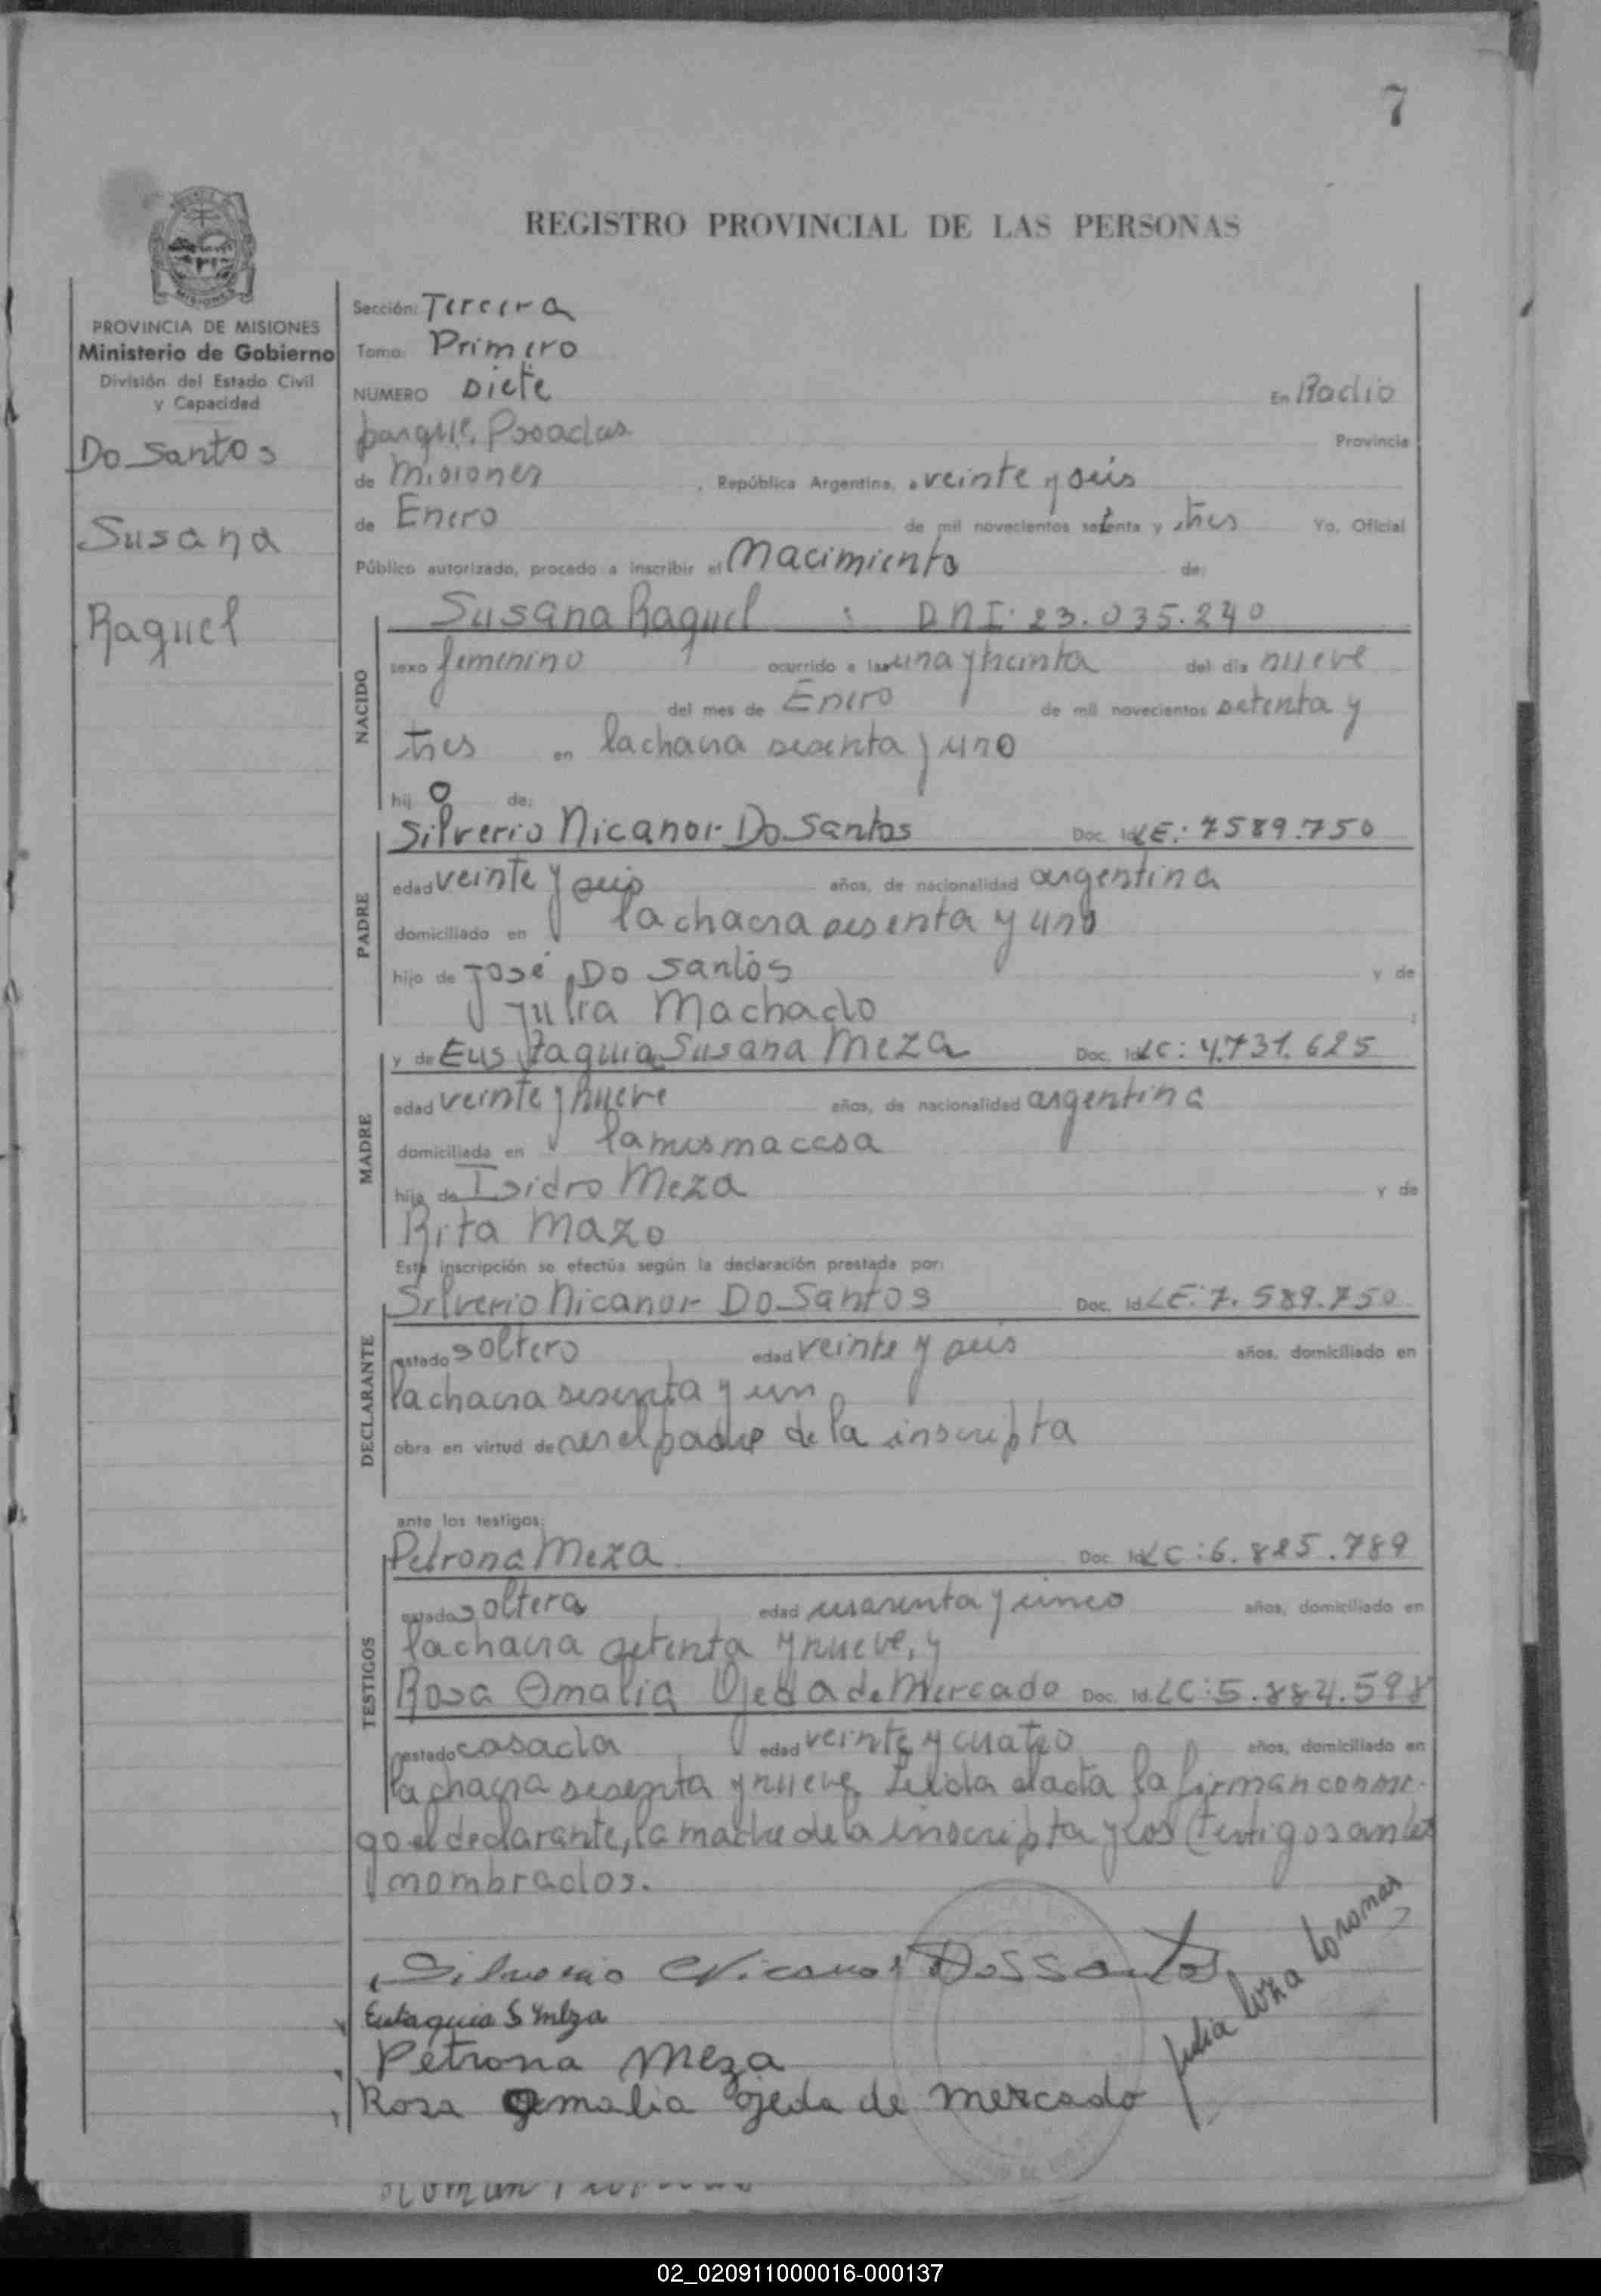 7
REGISTRO PROVINCIAL DE LAS PERSONAS
PROVINCIA DE MISIONES
Ministerio de Gobierno
División del Estado Civil
y Capacidad
Do Santos
Susana
Raquel
Sección: Tercera
Tomo: Primero
NUMERO Siete En Radio
parque, Posadas Provincia
de Misiones , República Argentina, a veinte y seis
de Enero de mil novecientos setenta y tres Yo, Oficial
Público autorizado, procedo a inscribir el Nacimiento de:
Susana Raquel : DNI: 23.035.240
NACIDO
sexo femenino ocurrido a las una y treinta del día nueve
del mes de Enero de mil novecientos setenta y
tres en la chacra sesenta y uno
hij o de:
Silverio Nicanor Do Santos Doc. Id. LE: 7589.750
PADRE
edad veinte y seis años, de nacionalidad argentina
domiciliado en la chacra sesenta y uno
hijo de José Do Santos y de
Julia Machado
y de Eustaquia Susana Meza Doc. Id. LC: 4.731.625
MADRE
edad veinte y nueve años, de nacionalidad argentina
domiciliada en la misma casa
hija de Isidro Meza y de
Rita Mazo
Esta inscripción se efectúa según la declaración prestada por:
Silverio Nicanor Do Santos Doc. Id. LE: 7.589.750
DECLARANTE
estado soltero edad veinte y seis años, domiciliado en
la chacra sesenta y un
obra en virtud de ser el padre de la inscripta
ante los testigos:
Petrona Meza Doc. Id. LC: 6.825.789
TESTIGOS
estado soltera edad cuarenta y cinco años, domiciliado en
la chacra setenta y nueve, y
Rosa Amalia Ojeda de Mercado Doc. Id. LC: 5.884.598
estado casada edad veinte y cuatro años, domiciliado en
la chacra sesenta y nueve Leida el acta la firman conmi-
go el declarante, la madre de la inscripta y los testigos antes
nombrados.
Silverio Nicanor Dos Santos
Eutaquia S Meza
Petrona Meza
Rosa Amalia Ojeda de Mercado
Julia
02_020911000016-000137